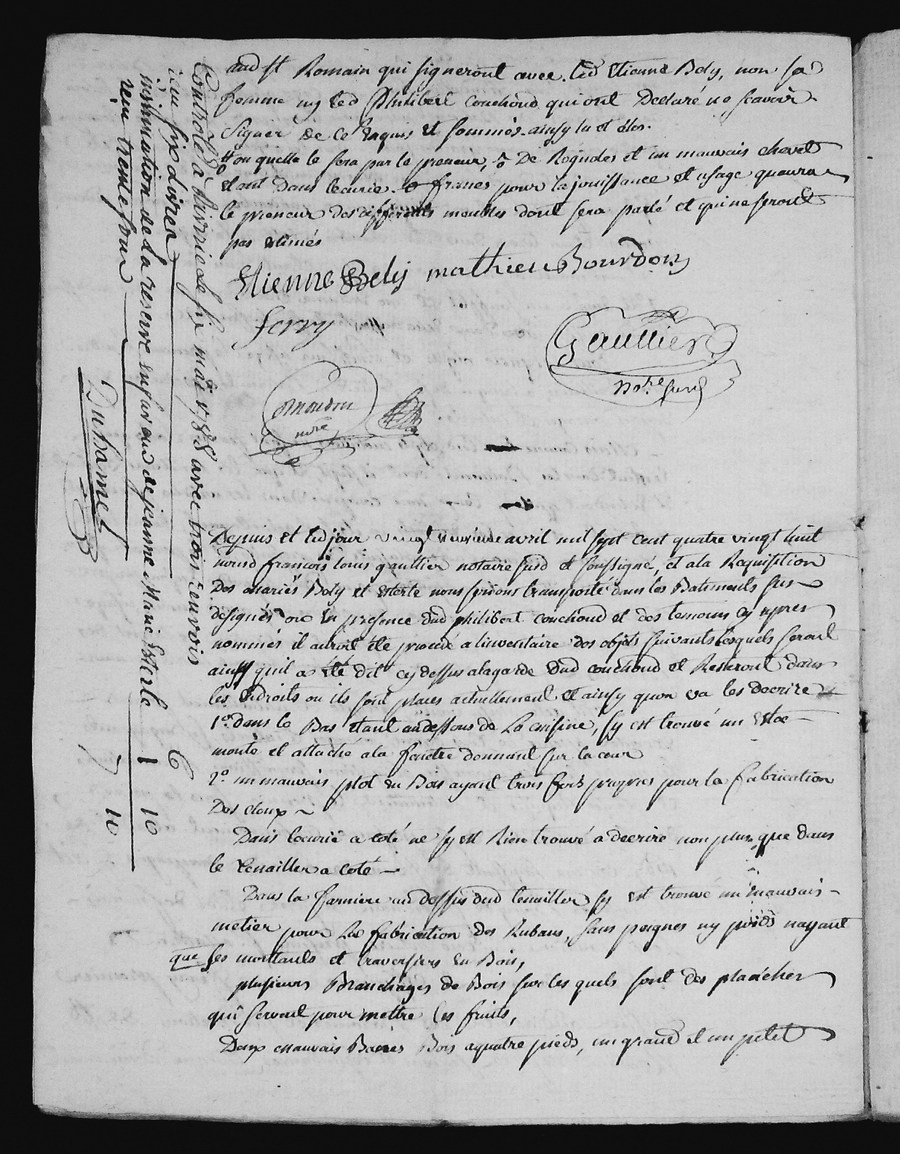 aud st Romain qui signeront avec led Etienne Bely, non sa
femme ny led Philibert couchoud qui ont Declaré ne scavoir
signer de ce Enquis et sommés ainsy lu et
ou quelle le sera par le preneur, 5 De Rogndes et un mauvais chevet
etant dans lecurie francs pour la jouissance et usage quaura
le preneur des différents meubles dont sera parlé et qui ne seront
pas estimés
Etienne Bely mathieu Bourdon
ferry
Gaultier
no.re
nore
Depuis et led jour vingt neuvieme avril mil sept cent quatre vingt huit
nousd francois louis gaultier notaire susd et soussigné, et ala Requisition
Des mariés Bely et Esterle nous serions transporté dans les Batiments sus
désignés ou En presence dud philibert couchoud et des temoins cy apres
nommés il auroit été procedé a linventaire des objets suivants lesquels seront
ainsy quil a été dit cy dessus alagarde dud couchoud et Resteront dans
les Endroits ou ils sont placés actuellement et ainsy quon va les decrire
1°. Dans le Bas etant audessous de La cuisine, sy est trouvé un Etoc
monté et attaché ala fenetre donnant sur la cour
2°. un mauvais plot en Bois ayant trois propres pour la fabrication
Des cloux
Dans lecurie a coté ne sy est Rien trouvé a decrire non plus que dans
le tenailler a coté
Dans la farniere au dessus dud tenailler sy est trouvé un mauvais
metier pour La fabrication des Rubans, sans peignes ny poids nayant
que ses montants et traversiers en Bois,
plusieurs Branchages de Bois sur les quels sont des plancher
qui servent pour mettre les fruits,
Deux mauvais Bancs Bois aquatre pieds, un grand et un petit
Controlé a le six may 1788 avec trois renvois
reçu six livres
insinuation de la reserve en faveur de jeanne Marie Esterle
reçu trente sous
6
1 10
7 10
Duhamel